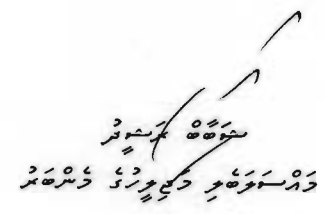 ޝަބާބް ރަޝީދު
މައްސަލަބެލި މަޖިލީހުގެ މެންބަރު